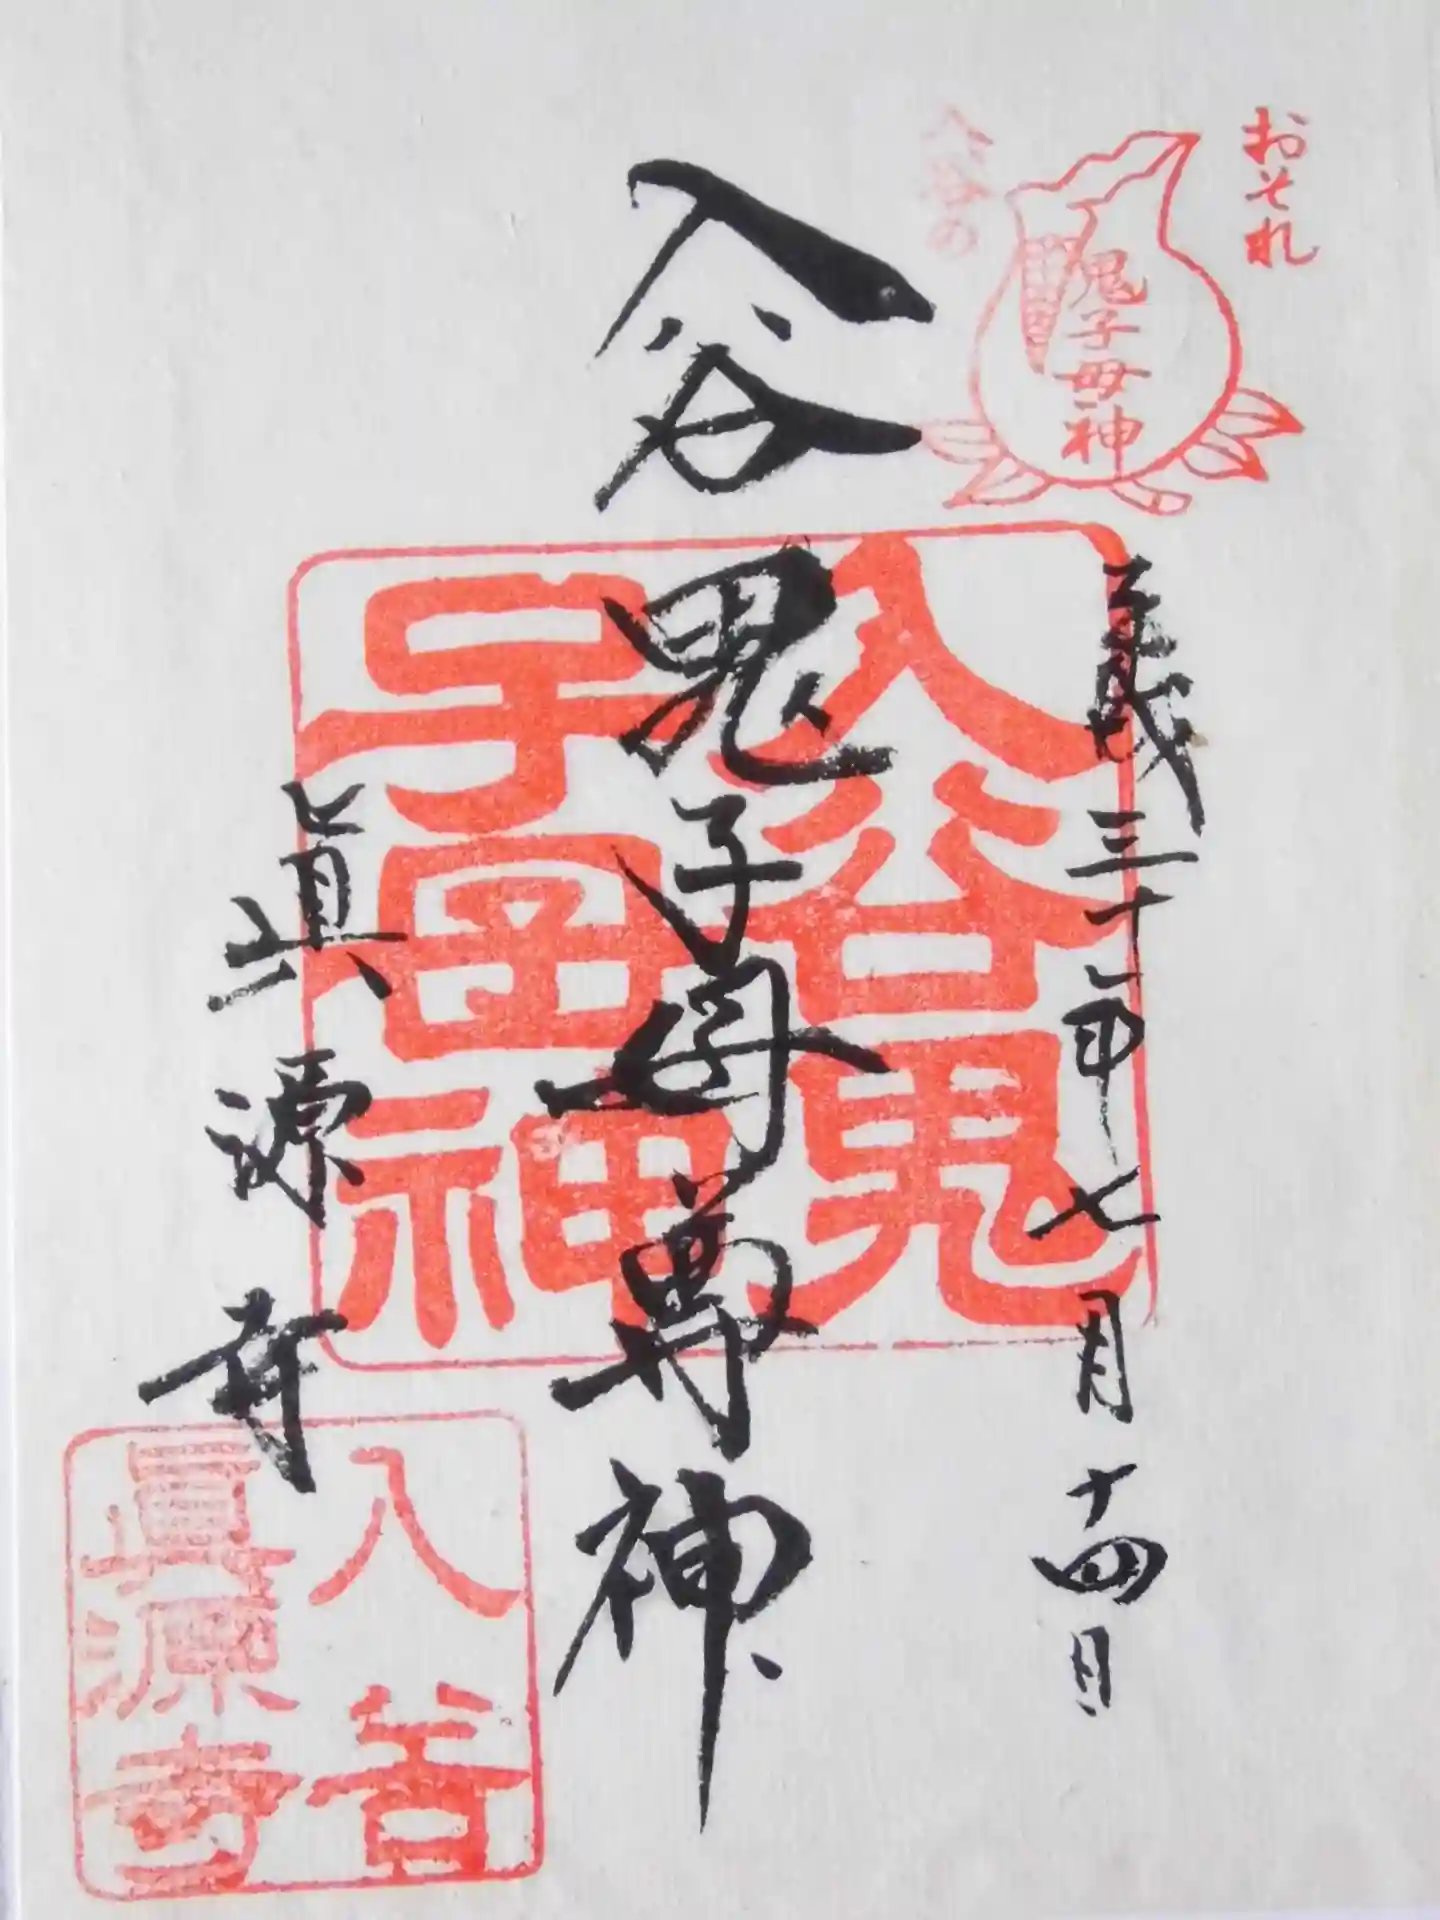 おそれ
鬼子母神
入谷の
平成三十年七月十四日
入谷鬼子母尊神
眞源寺
入谷鬼
子母神
入谷
眞源寺